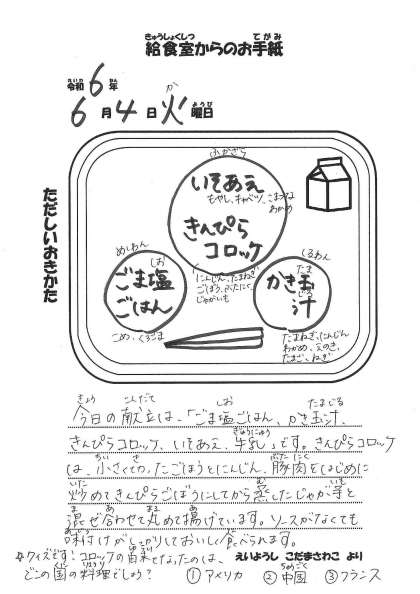 給食室からのお手紙
きゅうしょくしつ てがみ
令和6年
れいわ ねん
6月4日火曜日
か ようび
ただしいおきかた
ふかざら
いそあえ
もやし、キャベツ、こまつな
わかめ
きんぴら
コロッケ
にんじん、たまねぎ
ごぼう、ぶたにく
じゃがいも
めしわん
しお
ごま塩
ごはん
こめ、くろごま
しるわん
たま
かき玉
じる
汁
たまねぎ、にんじん
わかめ、えのき、
たまご、ねぎ
きょう こんだて しお たまじる
今日の献立は、「ごま塩ごはん、かき玉汁、
ぎゅうにゅう
きんぴらコロッケ、いそあえ、牛乳」です。きんぴらコロッケ
ちい ぶたにく
は、小さくきったごぼうとにんじん、豚肉をはじめに
いた む
炒めてきんぴらごぼうにしてから蒸したじゃが芋と
ま あ まる あ
混ぜ合わせて丸めて揚げています。ソースがなくても
あじつ た
味付けがしっかりしておいしく食べられます。
クイズです!コロッケの由来となったのは、
ゆらい
えいようし こだまさわこ より
どこの国の料理でしょう? ①アメリカ ②中国 ③フランス